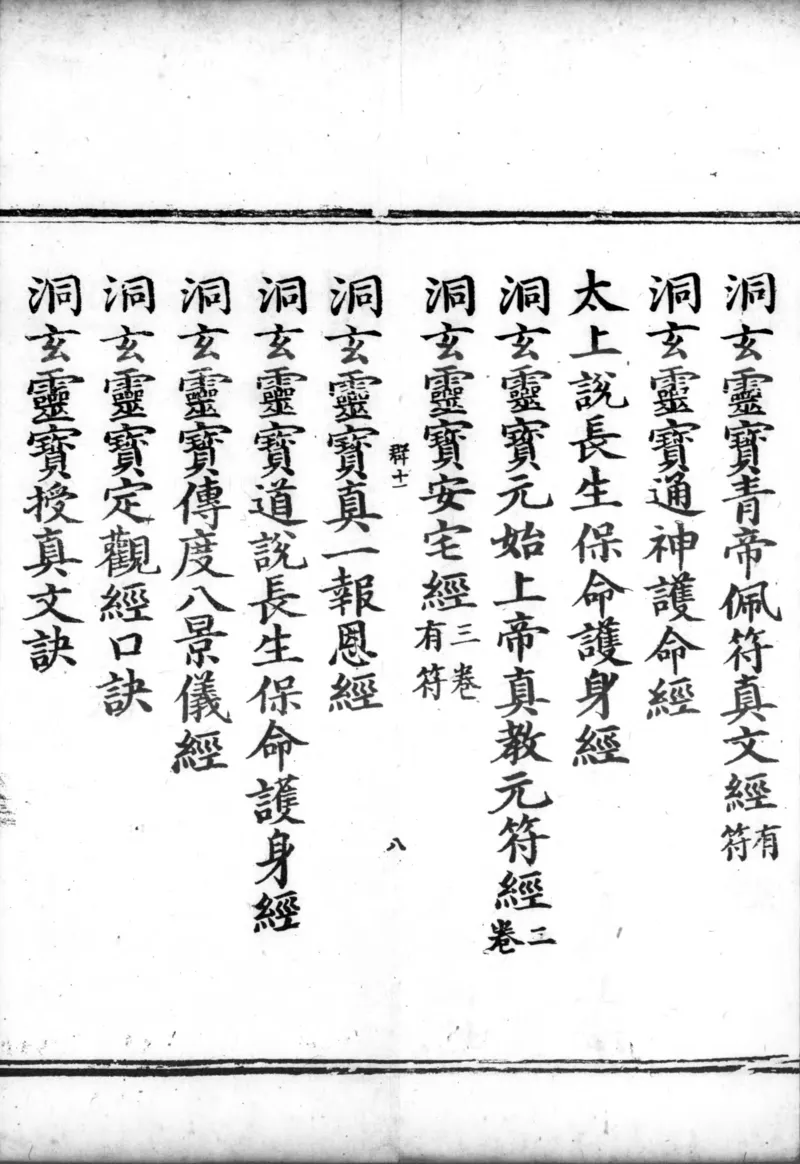 洞玄靈寶青帝佩符真文經有符
洞玄靈寶通神護命經
太上說長生保命護身經
洞玄靈寶元始上帝真教元符經二卷
洞玄靈寶安宅經三卷有符
群十一
八
洞玄靈寶真一報恩經
洞玄靈寶道說長生保命護身經
洞玄靈寶傳度八景儀經
洞玄靈寶定觀經口訣
洞玄靈寶授真文訣